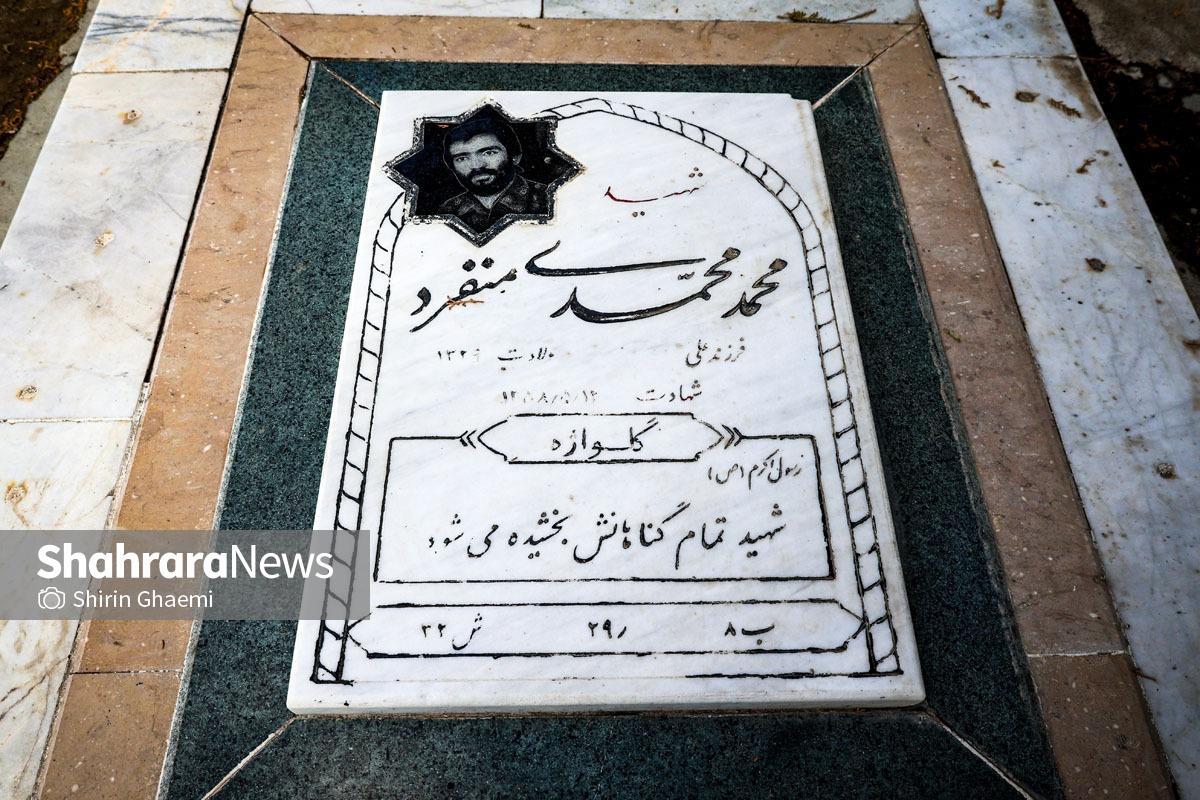 شهید
محمد محمدی منفرد
فرزند علی ولادت
شهادت ۱۳۵۸/۵/۱۲
گلواژه
رسول اکرم (ص)
شهید تمام گناهانش بخشیده می شود
ب ۸ ر ۲۹ ش ۳۲
ShahraraNews
Shirin Ghaemi